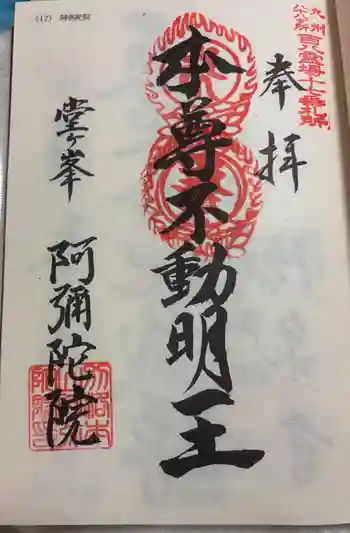 (17) 阿弥陀院
九州八十八ヶ所
百八霊場十七番札所
奉拝
本尊不動明王
堂ヶ峯
阿彌陀院